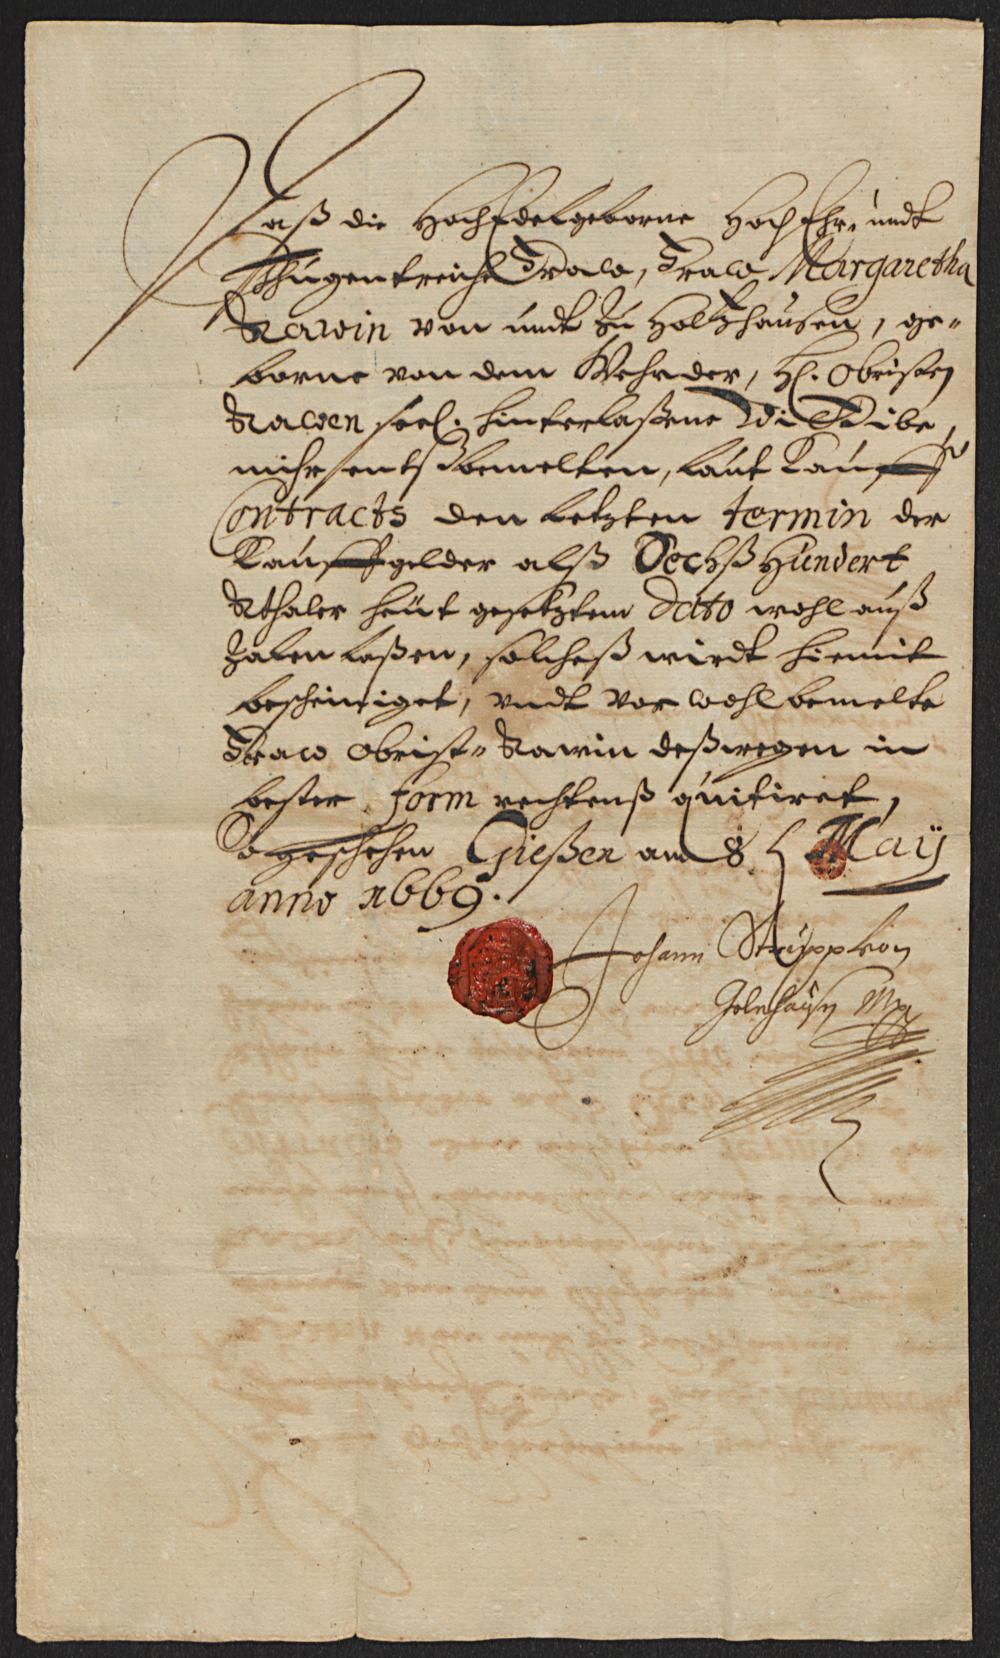 Daß die HochEdelgeborne Hoch Ehr- undt
Thugentreiche Fraw, Fraw Margaretha
Rawin von undt zu Holtzhausen, ge-
borne von dem Wehrder, H. Obristen
Rawen seel. hinterlaßene Wittibe,
mihr entsbemelten, laut Kauff
Contracts den letzten termin der
Kauffgelder alß Sechß Hundert
Rthaler heut gesetztem dato wohl auß
zalen laßen, solcheß wirdt hiemit
bescheiniget, undt vor wohl bemelte
Fraw Obrist- Rawin deßwegen in
bester form rechtenß quitiret,
So geschehen Gießen am 8 t May
anno 1669.
Johann Strupp von
Gelnhausen Mpr